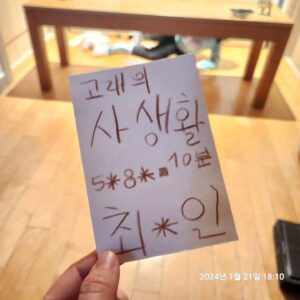 고래의
사생활
5*8*. 10분
최*인
2024년 1월 21일 18:10